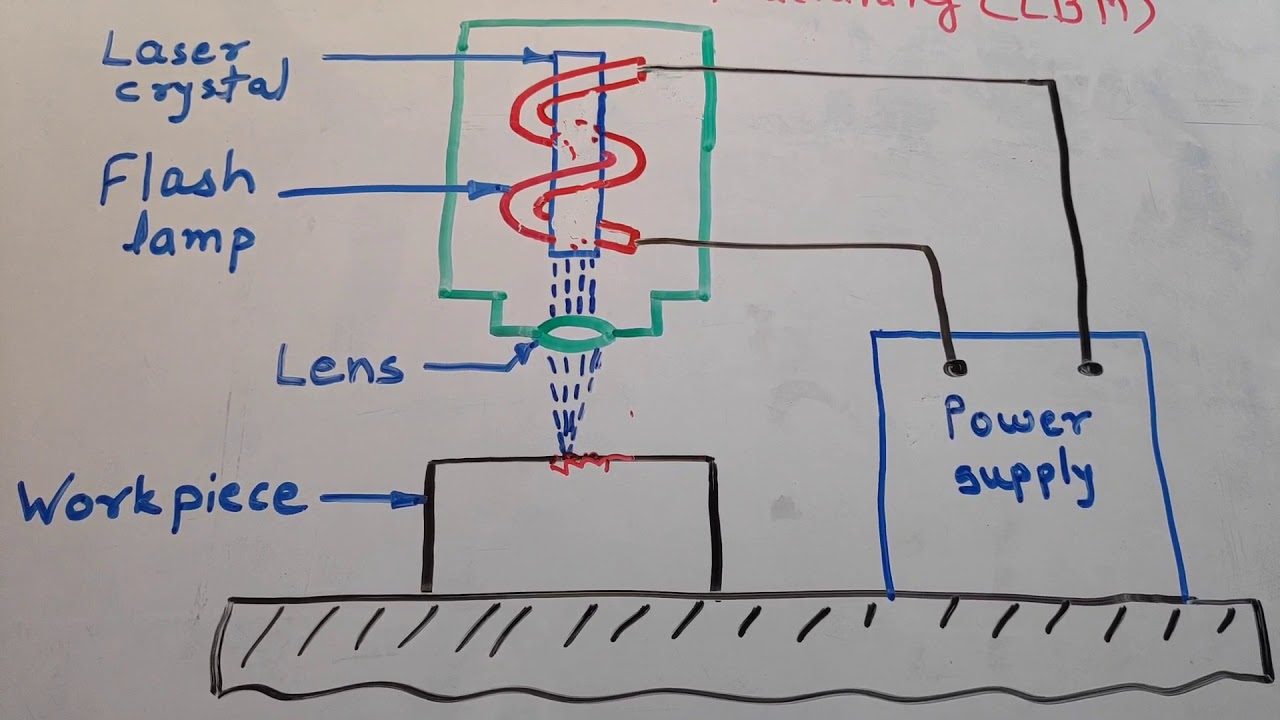 (LBM)
Laser
crystal
Flash
lamp
Lens
Workpiece
Power
supply